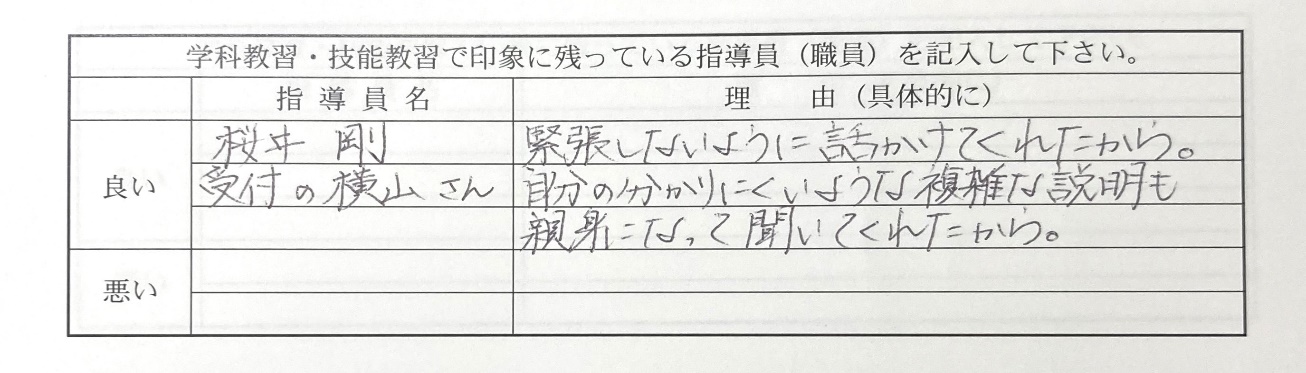 学科教習・技能教習で印象に残っている指導員（職員）を記入して下さい。
指導員名 理由（具体的に）
良い
桜井 剛 緊張しないように話かけてくれたから。
受付の横山さん 自分の分かりにくいような複雑な説明も
親身になって聞いてくれたから。
悪い